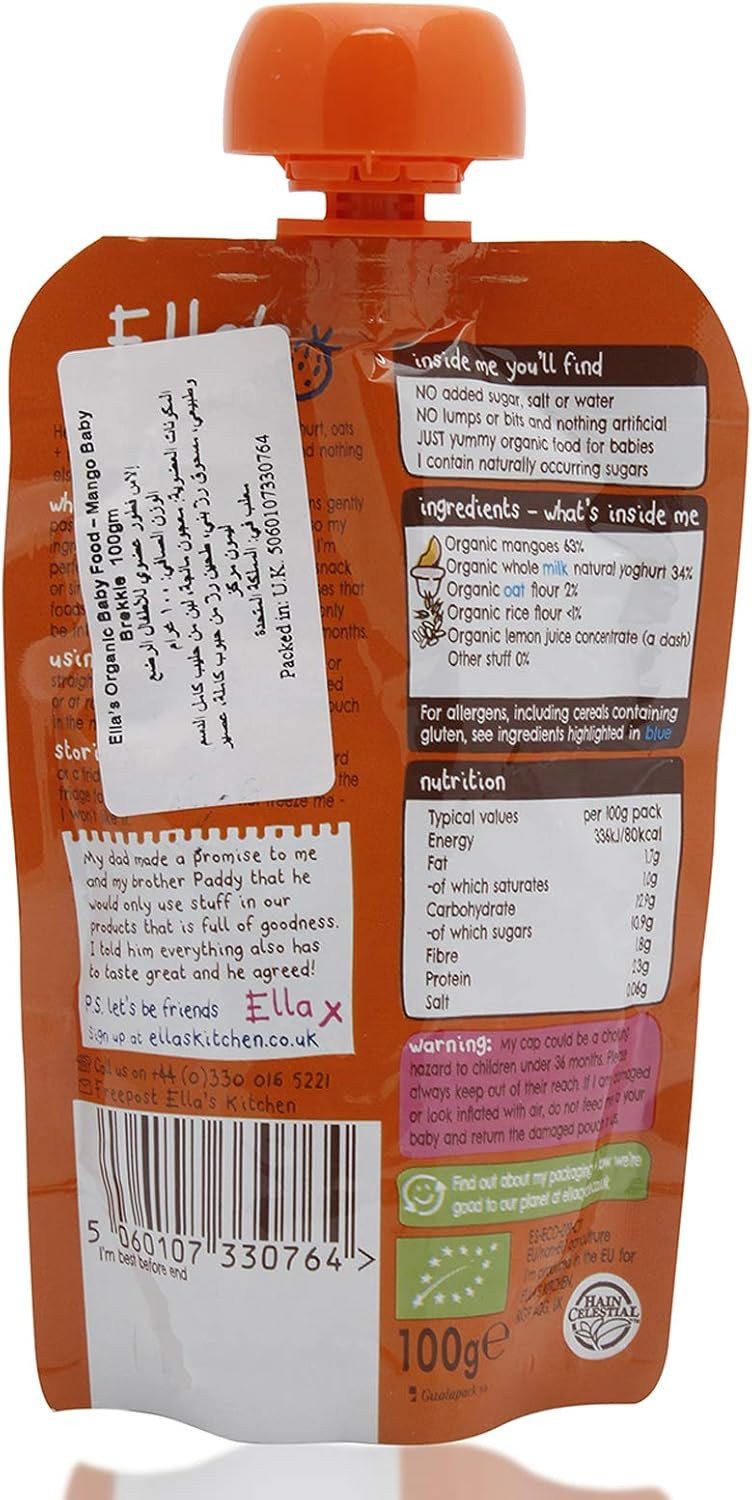 Ella's
Ella's Organic Baby Food – Mango Baby
Brekkie 100gm
إلاس فطور عضوي للأطفال الرضع
الوزن الصافي: ١٠٠ غرام
المكونات العضوية: معجون مانجة، لبن من حليب كامل الدسم
وطبيعي، مسحوق رز بني، طحين رز من حبوب كاملة، عصير
ليمون مركز
معلب في: المملكة المتحدة
Packed in: U.K. 5060107330764
My dad made a promise to me
and my brother Paddy that he
would only use stuff in our
products that is full of goodness.
I told him everything also has
to taste great and he agreed!
P.S. let's be friends Ella x
sign up at ellaskitchen.co.uk
Call us on +44 (0)330 016 5221
Freepost Ella's Kitchen
5 060107 330764 >
I'm best before end
inside me you'll find
NO added sugar, salt or water
NO lumps or bits and nothing artificial
JUST yummy organic food for babies
I contain naturally occurring sugars
ingredients – what's inside me
Organic mangoes 63%
Organic whole milk natural yoghurt 34%
Organic oat flour 2%
Organic rice flour <1%
Organic lemon juice concentrate (a dash)
Other stuff 0%
For allergens, including cereals containing
gluten, see ingredients highlighted in blue
nutrition
Typical values per 100g pack
Energy 336kJ/80kcal
Fat 1.7g
-of which saturates 1.0g
Carbohydrate 12.9g
-of which sugars 10.9g
Fibre 1.8g
Protein 2.3g
Salt 0.06g
warning: My cap could be a choking
hazard to children under 36 months. Please
always keep out of their reach. If I am damaged
or look inflated with air, do not feed me to your
baby and return the damaged pouch to us.
Find out about my packaging
good to our planet at
ES-ECO-019-CT
EU/non-EU agriculture
I'm produced in the EU for
ELLA'S KITCHEN,
RG9 4QG, UK
HAIN
CELESTIAL
100g e
Gualapack